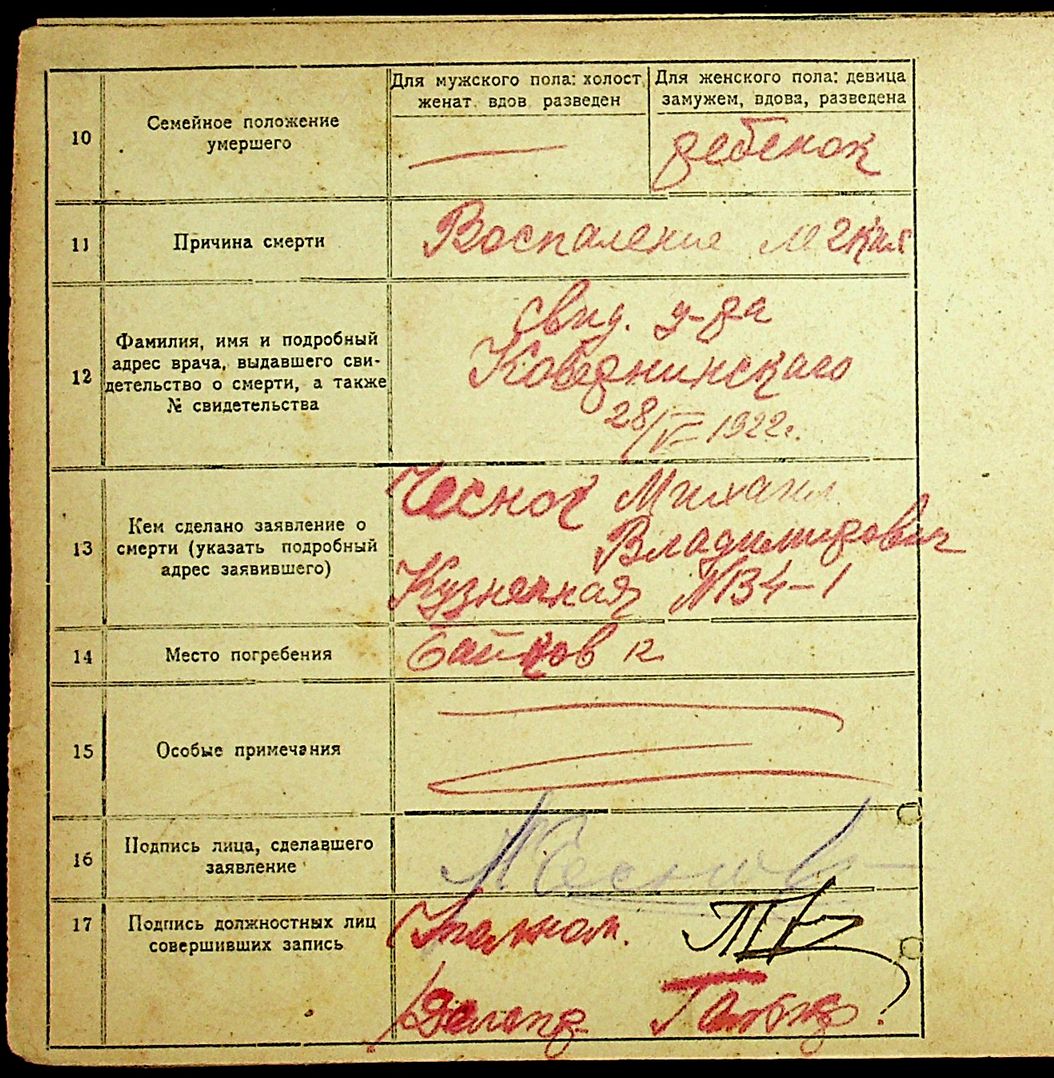 Для мужского пола: холост
женат вдов разведен
Для женского пола: девица
замужем, вдова, разведена
10
Семейное положение
умершего
—
ребенок
11
Причина смерти
Воспаление легких
12
Фамилия, имя и подробный
адрес врача, выдавшего сви-
детельство о смерти, а также
№ свидетельства
свид. д-ра
28/IV 1922г.
13
Кем сделано заявление о
смерти (указать подробный
адрес заявившего)
Михаил
Владимирович
Кузнечная №134-1
14
Место погребения
Байков к
15
Особые примечания
16
Подпись лица, сделавшего
заявление
17
Подпись должностных лиц
совершивших запись